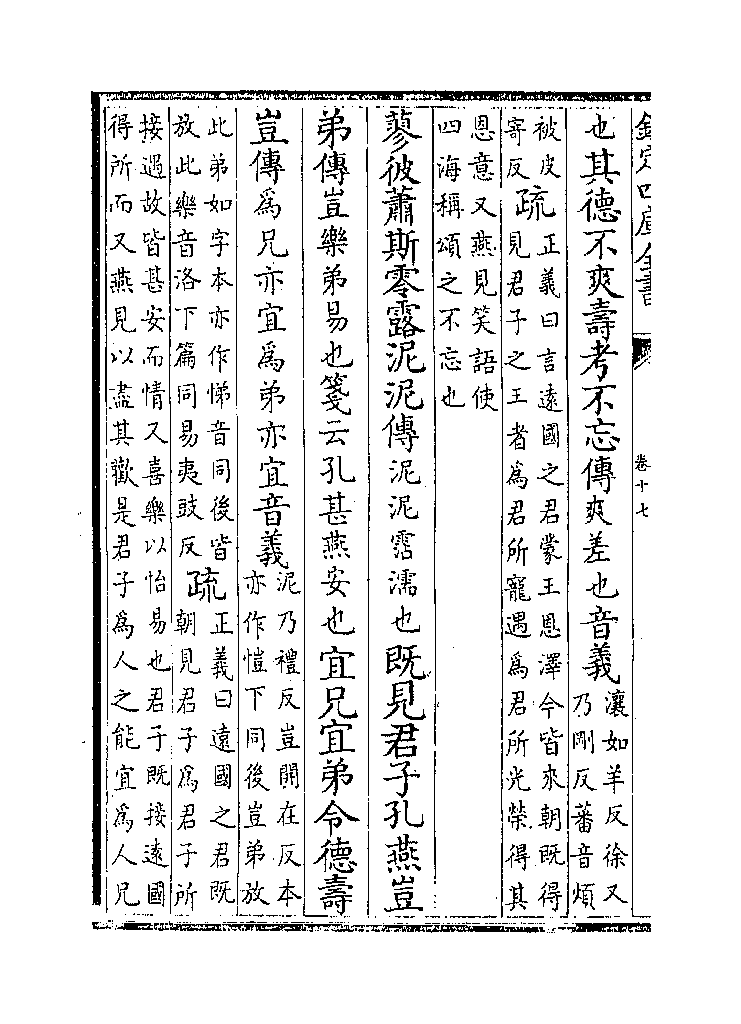 欽定四庫全書
卷十七
也其德不爽壽考不忘傳爽差也音義
瀼如羊反徐又
乃剛反蕃音煩
被皮
寄反
疏
正義曰言遠國之君蒙王恩澤今皆來朝既得
見君子之王者為君所寵遇為君所光榮得其
恩意又燕見笑語使
四海稱頌之不忘也
蓼彼蕭斯零露泥泥傳泥泥霑濡也既見君子孔燕豈
弟傳豈樂弟易也箋云孔甚燕安也宜兄宜弟令德壽
豈傳為兄亦宜為弟亦宜音義
泥乃禮反豈開在反本
亦作愷下同後豈弟放
此弟如字本亦作悌音同後皆
放此樂音洛下篇同易夷豉反
疏
正義曰遠國之君既
朝見君子為君子所
接遇故皆甚安而情又喜樂以怡易也君子既接遠國
得所而又燕見以盡其歡是君子為人之能宜為人兄